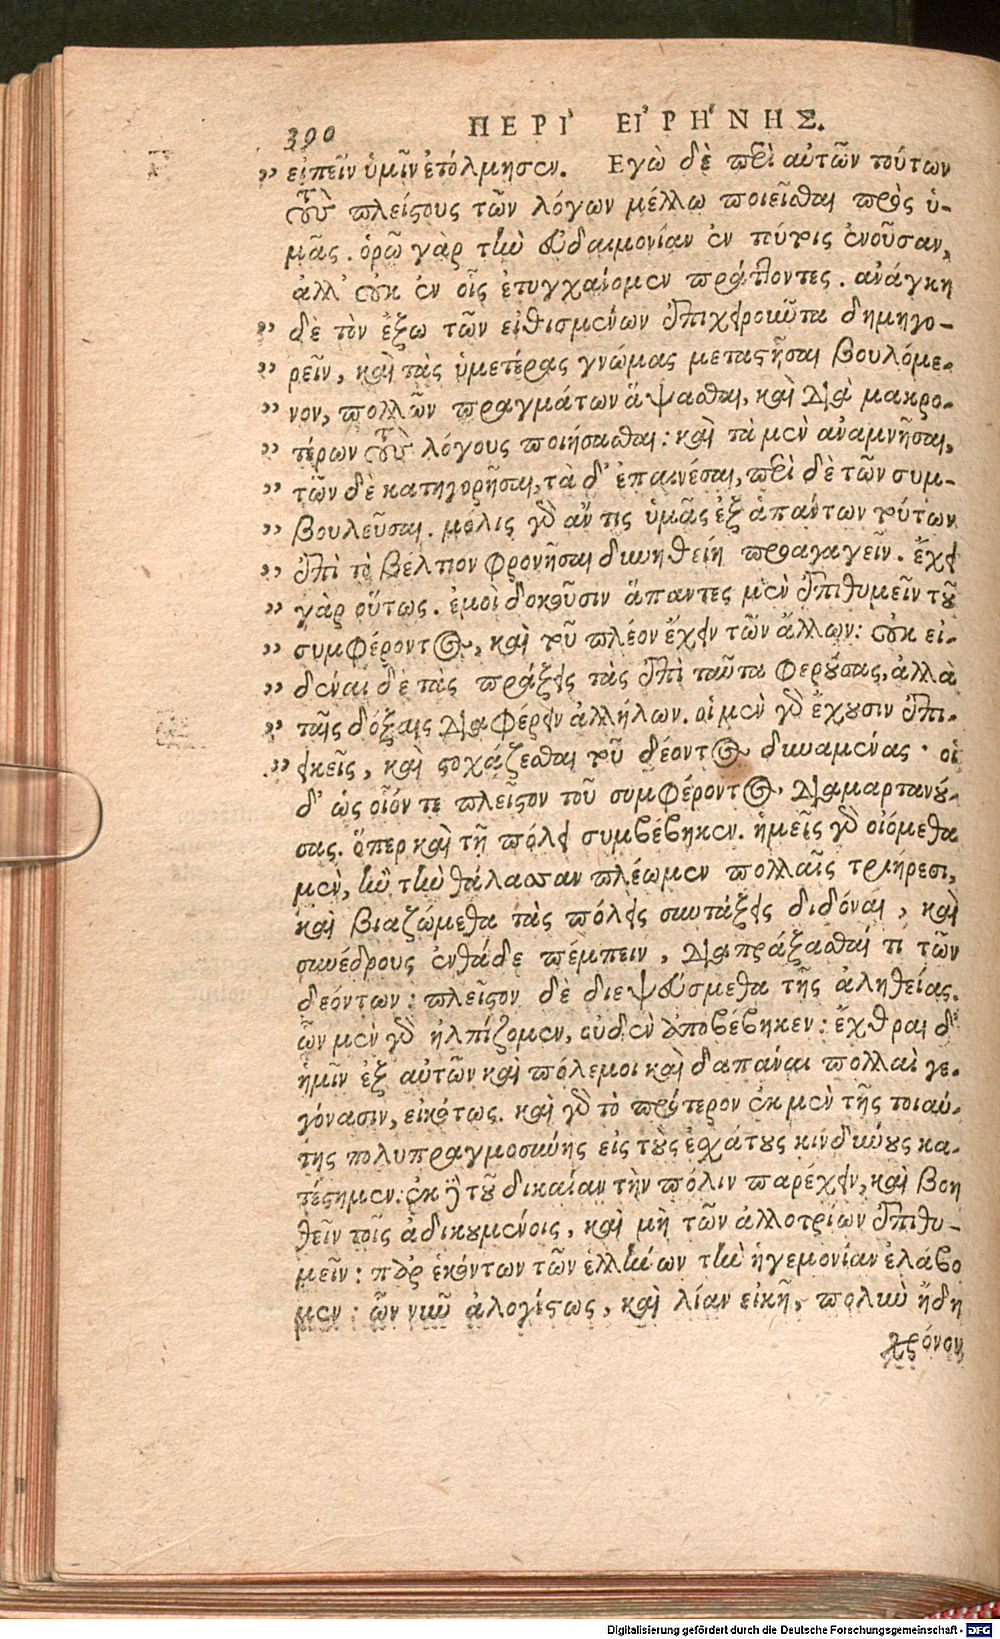 390 ΠΕΡΙ' ΕΙ'ΡΗ'ΝΗΣ.
„ εἰπεῖν ὑμῖν ἐτόλμησεν. Εγὼ δὲ περὶ αὐτῶν τούτων
τοὺς πλείστους τῶν λόγων μέλλω ποιεῖσθαι πρὸς ὑ-
μᾶς. ὁρῶ γὰρ τὴν εὐδαιμονίαν ἐν τούτοις ἐνοῦσαν,
ἀλλ' οὐκ ἐν οἷς ἐτυγχάνομεν πράττοντες. ἀνάγκη
„ δὲ τὸν ἔξω τῶν εἰθισμένων ἐπιχειροῦντα δημηγο-
„ ρεῖν, καὶ τὰς ὑμετέρας γνώμας μεταστῆσαι βουλόμε-
„ νον, πολλῶν πραγμάτων ἅψασθαι, καὶ διὰ μακρο-
„ τέρων τοὺς λόγους ποιήσασθαι: καὶ τὰ μὲν ἀναμνῆσαι,
„ τῶν δὲ κατηγορῆσαι, τὰ δ' ἐπαινέσαι, περὶ δὲ τῶν συμ-
„ βουλεῦσαι. μόλις γὰρ ἄν τις ὑμᾶς ἐξ ἁπάντων τούτων
„ ἐπὶ τὸ βέλτιον φρονῆσαι δυνηθείη προαγαγεῖν. ἔχει
„ γὰρ οὕτως. ἐμοὶ δοκοῦσιν ἅπαντες μὲν ἐπιθυμεῖν τοῦ
„ συμφέροντος, καὶ τοῦ πλέον ἔχειν τῶν ἄλλων: οὐκ εἰ-
„ δέναι δὲ τὰς πράξεις τὰς ἐπὶ ταῦτα φερούσας, ἀλλὰ
„ ταῖς δόξαις διαφέρειν ἀλλήλων. οἱ μὲν γὰρ ἔχουσιν ἐπι-
„ εικεῖς, καὶ στοχάζεσθαι τοῦ δέοντος δυναμένας· οἱ
δ' ὡς οἷόν τε πλεῖστον τοῦ συμφέροντος διαμαρτανού-
σας. ὅπερ καὶ τῇ πόλει συμβέβηκεν. ἡμεῖς γὰρ οἰόμεθα
μὲν, ἢν τὴν θάλασσαν πλέωμεν πολλαῖς τριήρεσι,
καὶ βιαζώμεθα τὰς πόλεις συντάξεις διδόναι, καὶ
συνέδρους ἐνθάδε πέμπειν, διαπράξασθαί τι τῶν
δεόντων: πλεῖστον δὲ διεψεύσμεθα τῆς ἀληθείας.
ὧν μὲν γὰρ ἠλπίζομεν, οὐδὲν ἀποβέβηκεν: ἔχθραι δ'
ἡμῖν ἐξ αὐτῶν καὶ πόλεμοι καὶ δαπάναι πολλαὶ γε-
γόνασιν, εἰκότως. καὶ γὰρ τὸ πρότερον ἐκ μὲν τῆς τοιαύ-
της πολυπραγμοσύνης εἰς τοὺς ἐσχάτους κινδύνους κα-
τέστημεν: ἐκ δὲ τοῦ δικαίαν τὴν πόλιν παρέχειν, καὶ βοη
θεῖν τοῖς ἀδικουμένοις, καὶ μὴ τῶν ἀλλοτρίων ἐπιθυ-
μεῖν: παρ' ἑκόντων τῶν ἑλλήνων τὴν ἡγεμονίαν ἐλάβο
μεν: ὧν νῦν ἀλογίστως, καὶ λίαν εἰκῆ, πολὺν ἤδη
χρόνον
Digitalisierung gefördert durch die Deutsche Forschungsgemeinschaft - DFG